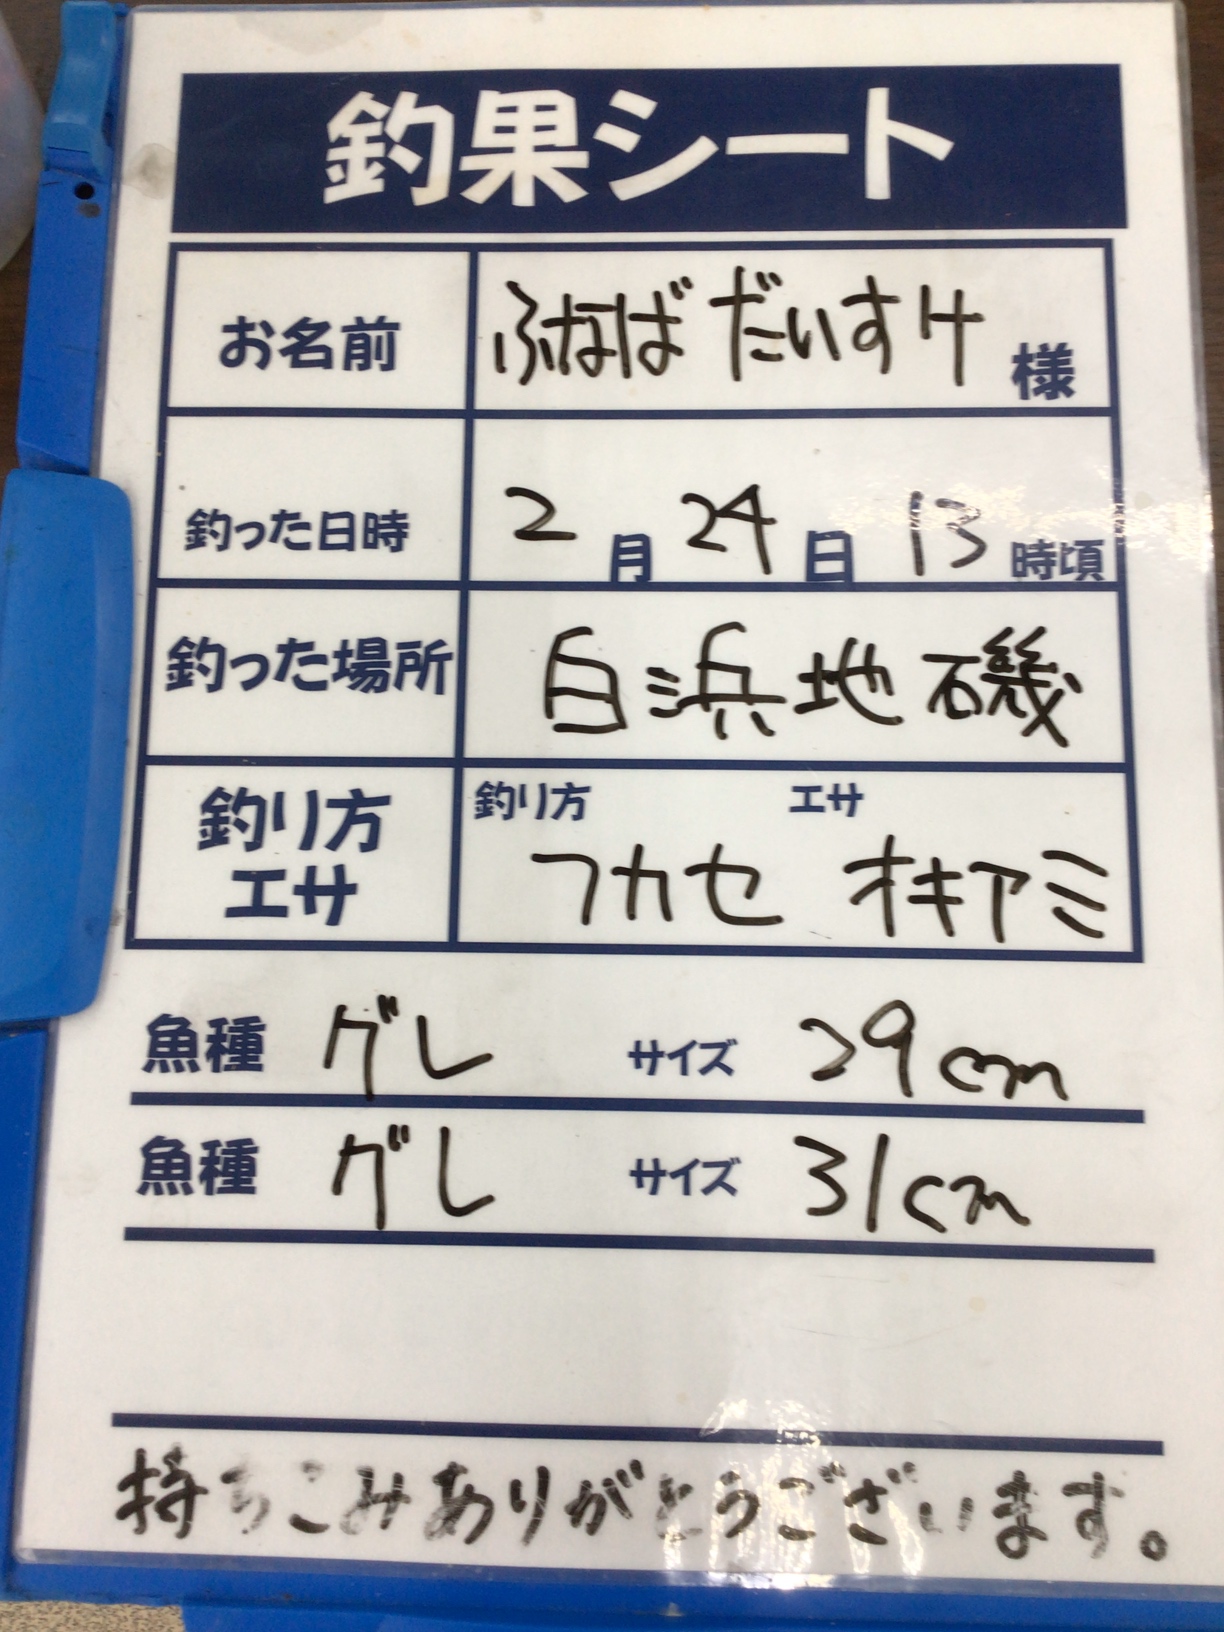 釣果シート
お名前 ふなば だいすけ 様
釣った日時 2月24日 13時頃
釣った場所 白浜地磯
釣り方 エサ
釣り方
エサ フカセ オキアミ
魚種 グレ サイズ 29cm
魚種 グレ サイズ 31cm
持ちこみありがとうございます。